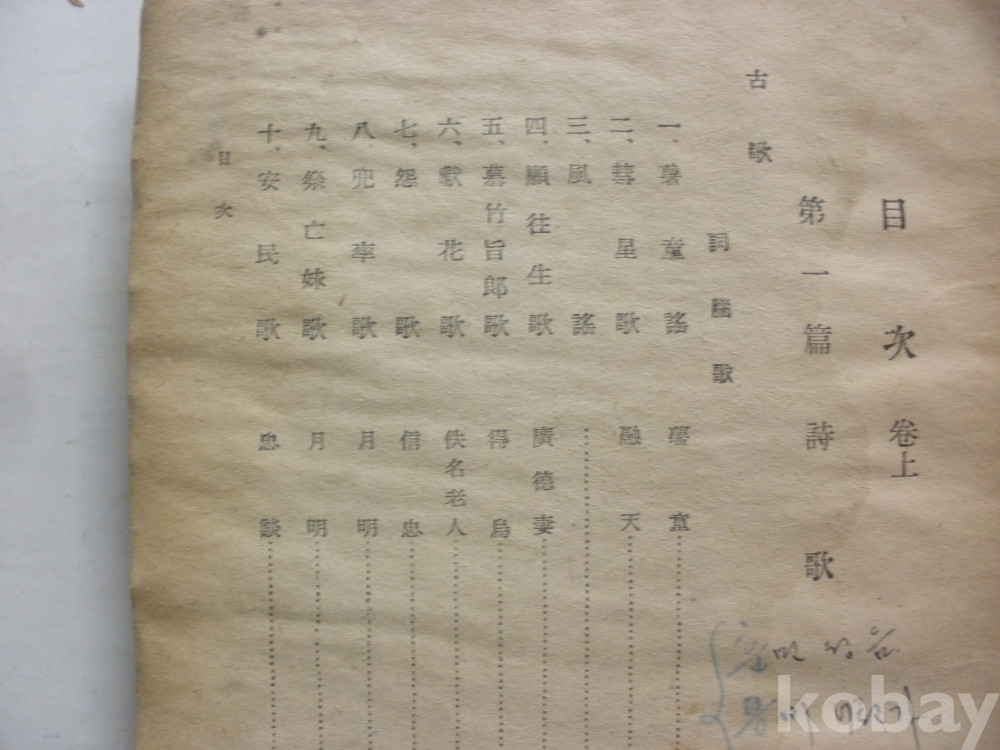 目次 卷上
第一篇 詩歌
古歌
詞腦歌
一、薯童謠 薯童
二、彗星歌 融天
三、風謠
四、願往生歌 廣德妻
五、慕竹旨郎歌 得烏
六、獻花歌 佚名老人
七、怨歌 信忠
八、兜率歌 月明
九、祭亡妹歌 月明
十、安民歌 忠談
目次
kobay